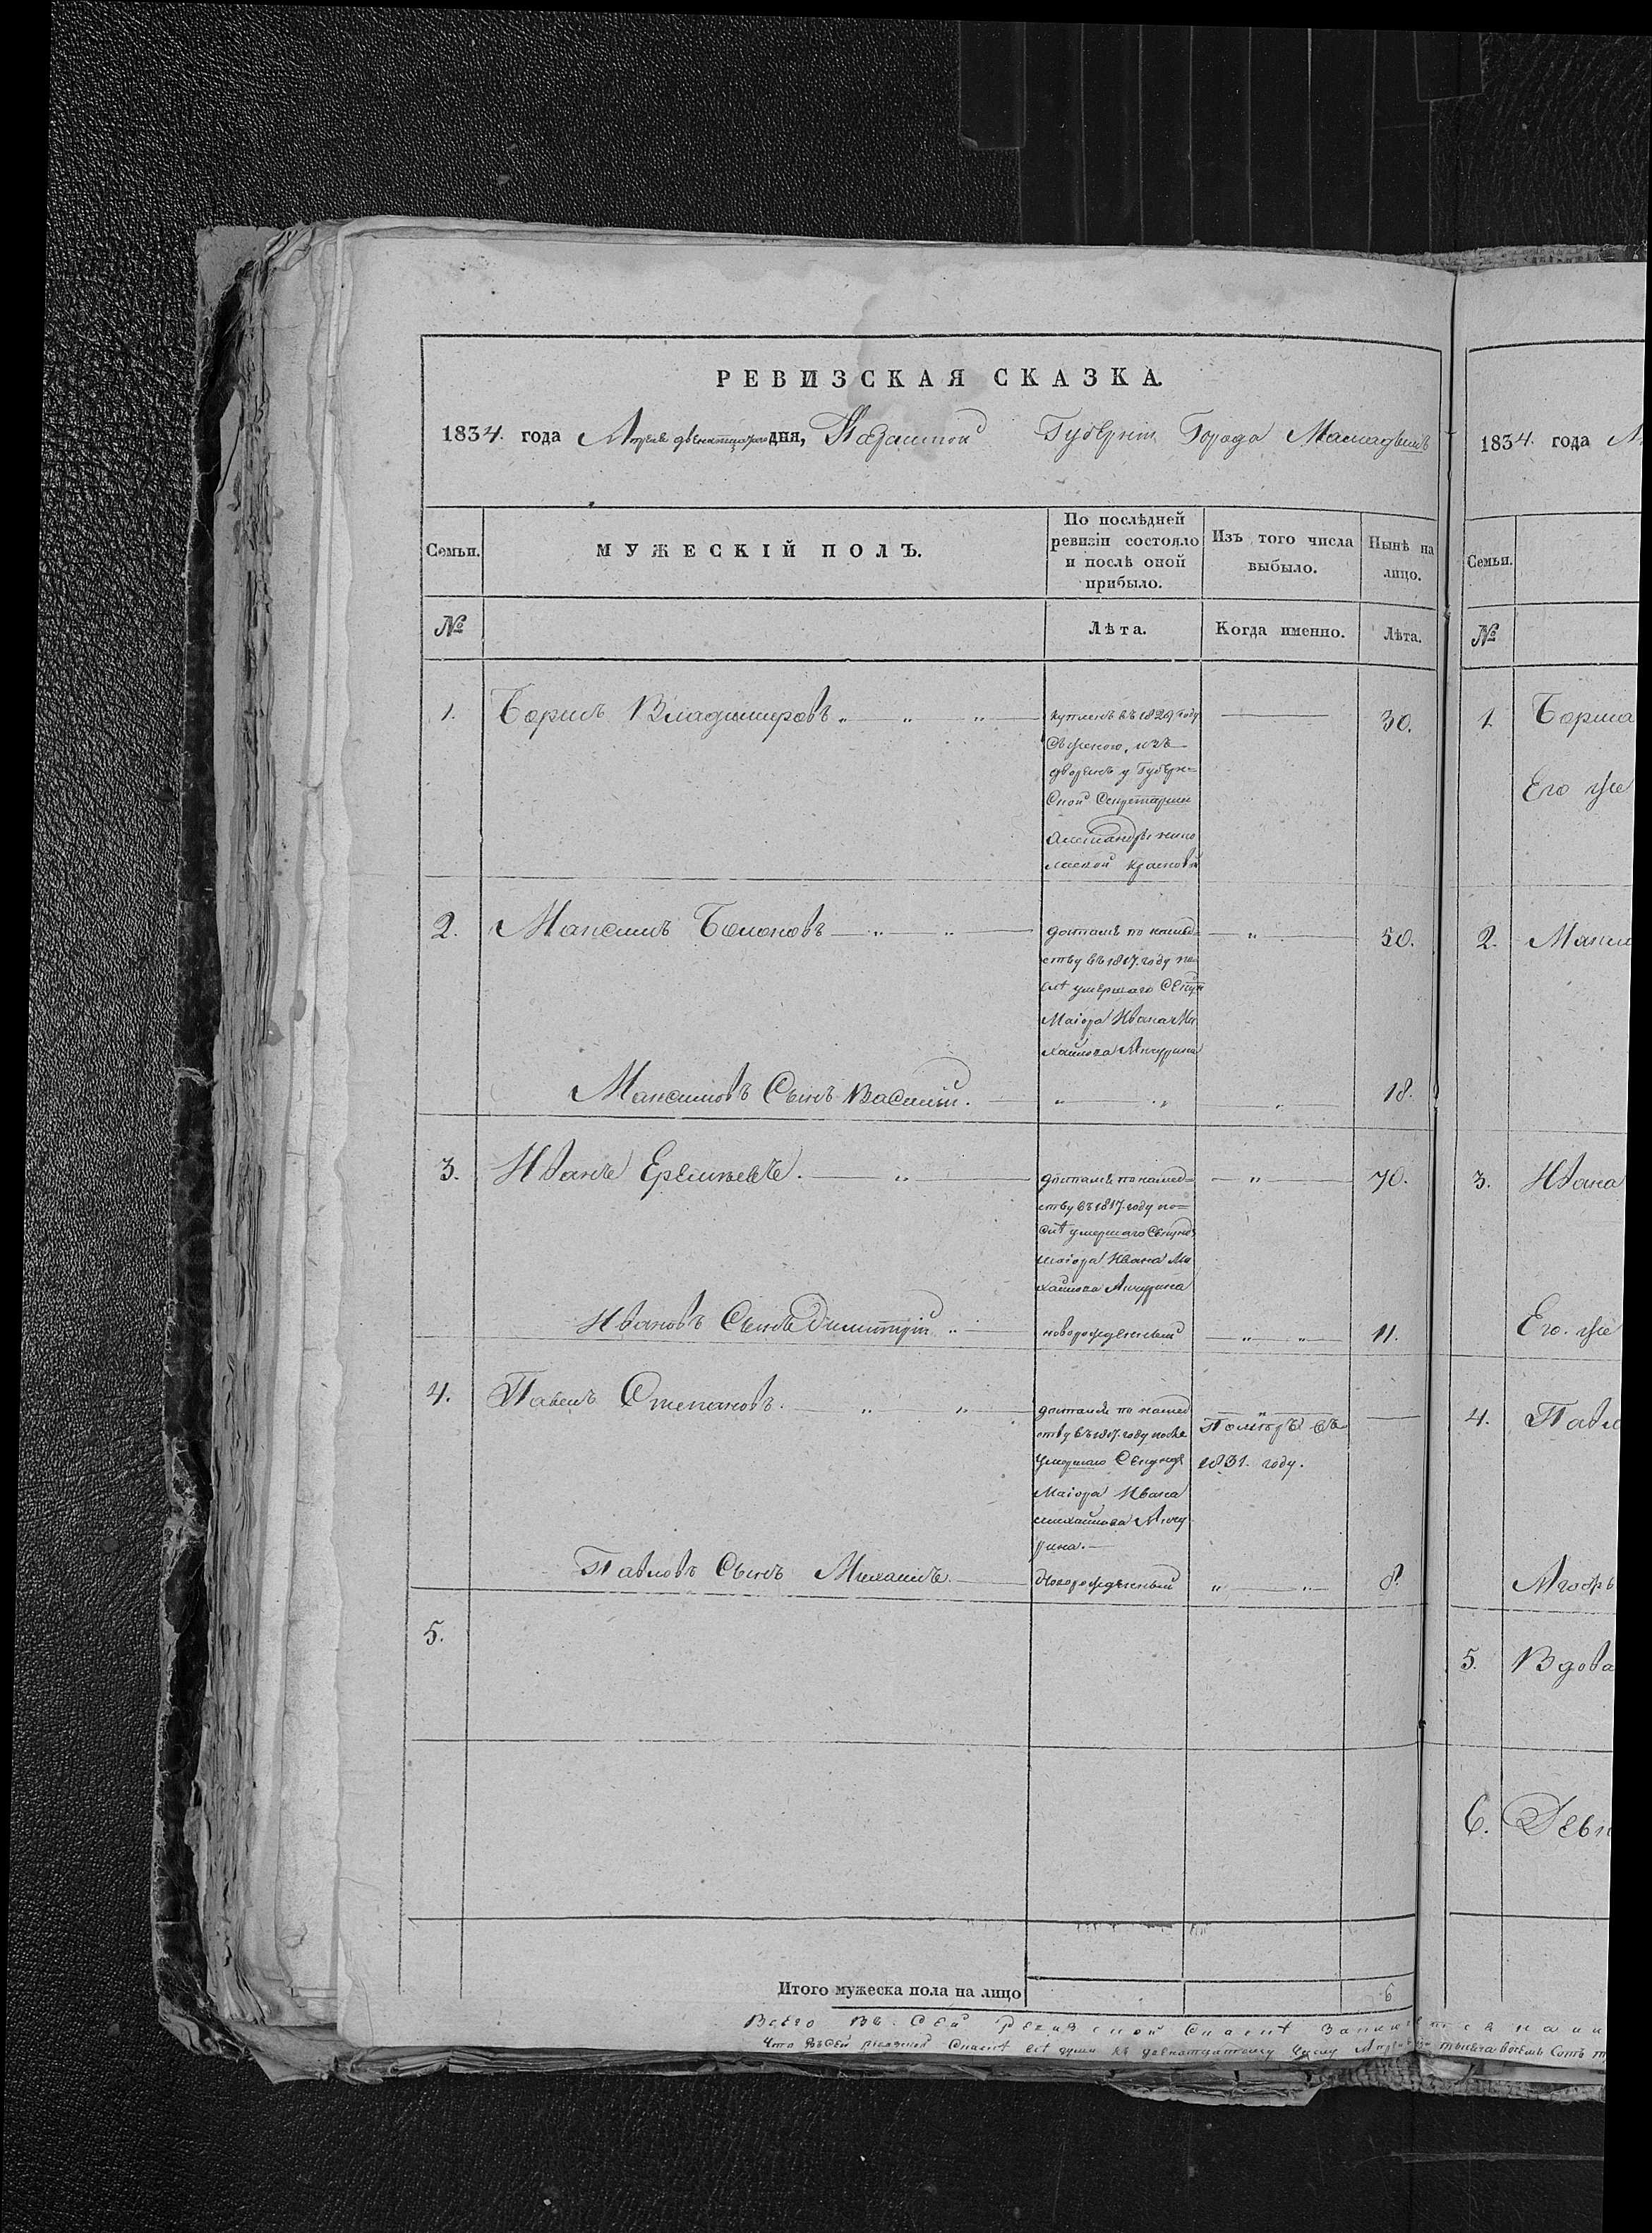 РЕВИЗСКАЯ СКАЗКА.
1834. года Апреля двенатцатаго дня, Казанской Губернiи Города Мамадышъ
Семьи.
МУЖЕСКІЙ ПОЛЪ.
По послѣдней
ревизіи состояло
и послѣ оной
прибыло.
Изъ того числа
выбыло.
Нынѣ на
лицо.
№
Лѣта.
Когда именно.
Лѣта.
1. Борисъ Владимировъ 30.
купленъ въ 1829 году
съ женою, изъ
дворянъ у Губерн=
ской Секретарши
Александры Нико
лаевой
2. Максимъ 50.
достался по наслед=
ству въ 1817. году по=
слѣ умершаго Секунд
Маіора Ивана Ми
хайлова Мичурина
Максимовъ Сынъ Василій. 18.
3. Иванъ 70.
достался по наслед=
ству въ 1817. году по=
слѣ умершаго Секундъ
маіора Ивана Ми
хайлова Мичурина
Ивановъ Сынъ Димитрій новорожденный 11.
4. Павелъ Степановъ.
достался по наслед
ству въ 1817. году после
умершаго Секундъ
Маіора Ивана
михайлова Мичу
рина.
Помѣръ въ
1831. году.
Павловъ Сынъ Михаилъ. Новорожденный 8.
5.
Итого мужеска пола на лицо 6
Всего въ сей ревизской Сказкѣ
Что въ сей ревизской Сказкѣ всѣ души къ двенатцатому Числу тысяча восемь Сотъ
1834. года
Семьи.
№
1. Бориса
Его же
2.
3. Ивана
Его же
4.
5. Вдова
6.